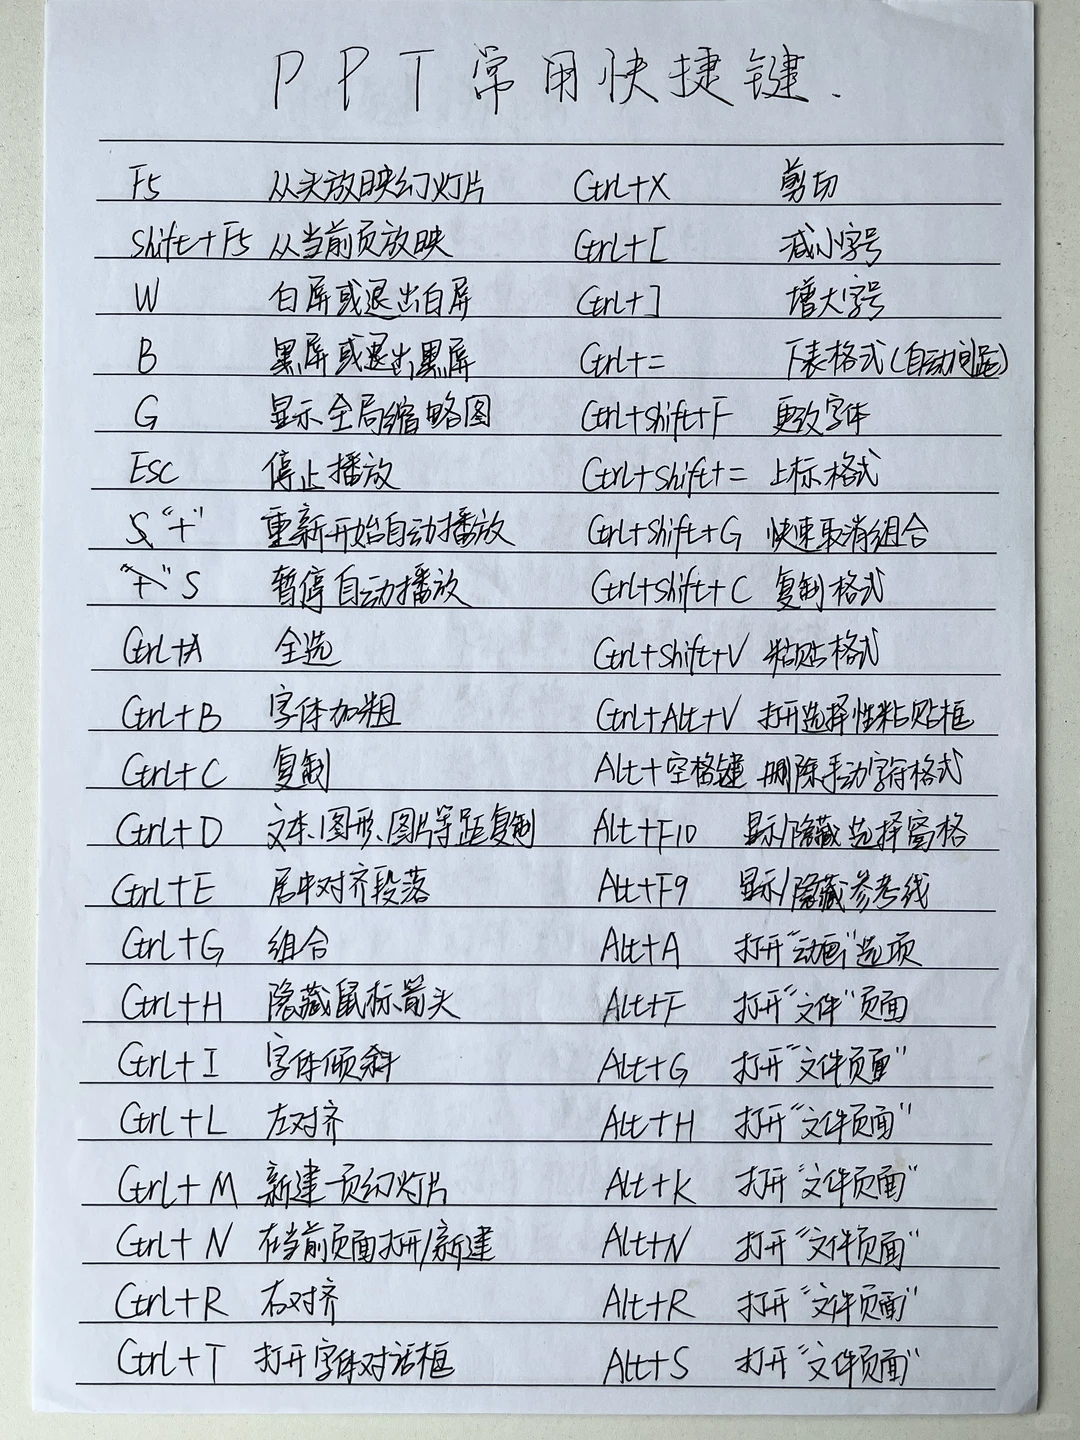 PPT常用快捷键.
F5 从头放映幻灯片 Ctrl+X 剪切
Shift+F5 从当前页放映 Ctrl+[ 减小字号
W 白屏或退出白屏 Ctrl+] 增大字号
B 黑屏或退出黑屏 Ctrl+= 下表格式(自动间距)
G 显示全局缩略图 Ctrl+Shift+F 更改字体
ESC 停止播放 Ctrl+Shift+= 上标格式
S "+" 重新开始自动播放 Ctrl+Shift+G 快速取消组合
"+" S 暂停自动播放 Ctrl+Shift+C 复制格式
Ctrl+A 全选 Ctrl+Shift+V 粘贴格式
Ctrl+B 字体加粗 Ctrl+Alt+V 打开选择性粘贴框
Ctrl+C 复制 Alt+空格键 删除手动字符格式
Ctrl+D 文本、图形、图片等距复制 Alt+F10 显示/隐藏选择窗格
Ctrl+E 居中对齐段落 Alt+F9 显示/隐藏参考线
Ctrl+G 组合 Alt+A 打开"动画"选项
Ctrl+H 隐藏鼠标箭头 Alt+F 打开"文件"页面
Ctrl+I 字体倾斜 Alt+G 打开"文件页面"
Ctrl+L 左对齐 Alt+H 打开"文件页面"
Ctrl+M 新建一页幻灯片 Alt+K 打开"文件页面"
Ctrl+N 在当前页面打开/新建 Alt+N 打开"文件页面"
Ctrl+R 右对齐 Alt+R 打开"文件页面"
Ctrl+T 打开字体对话框 Alt+S 打开"文件页面"